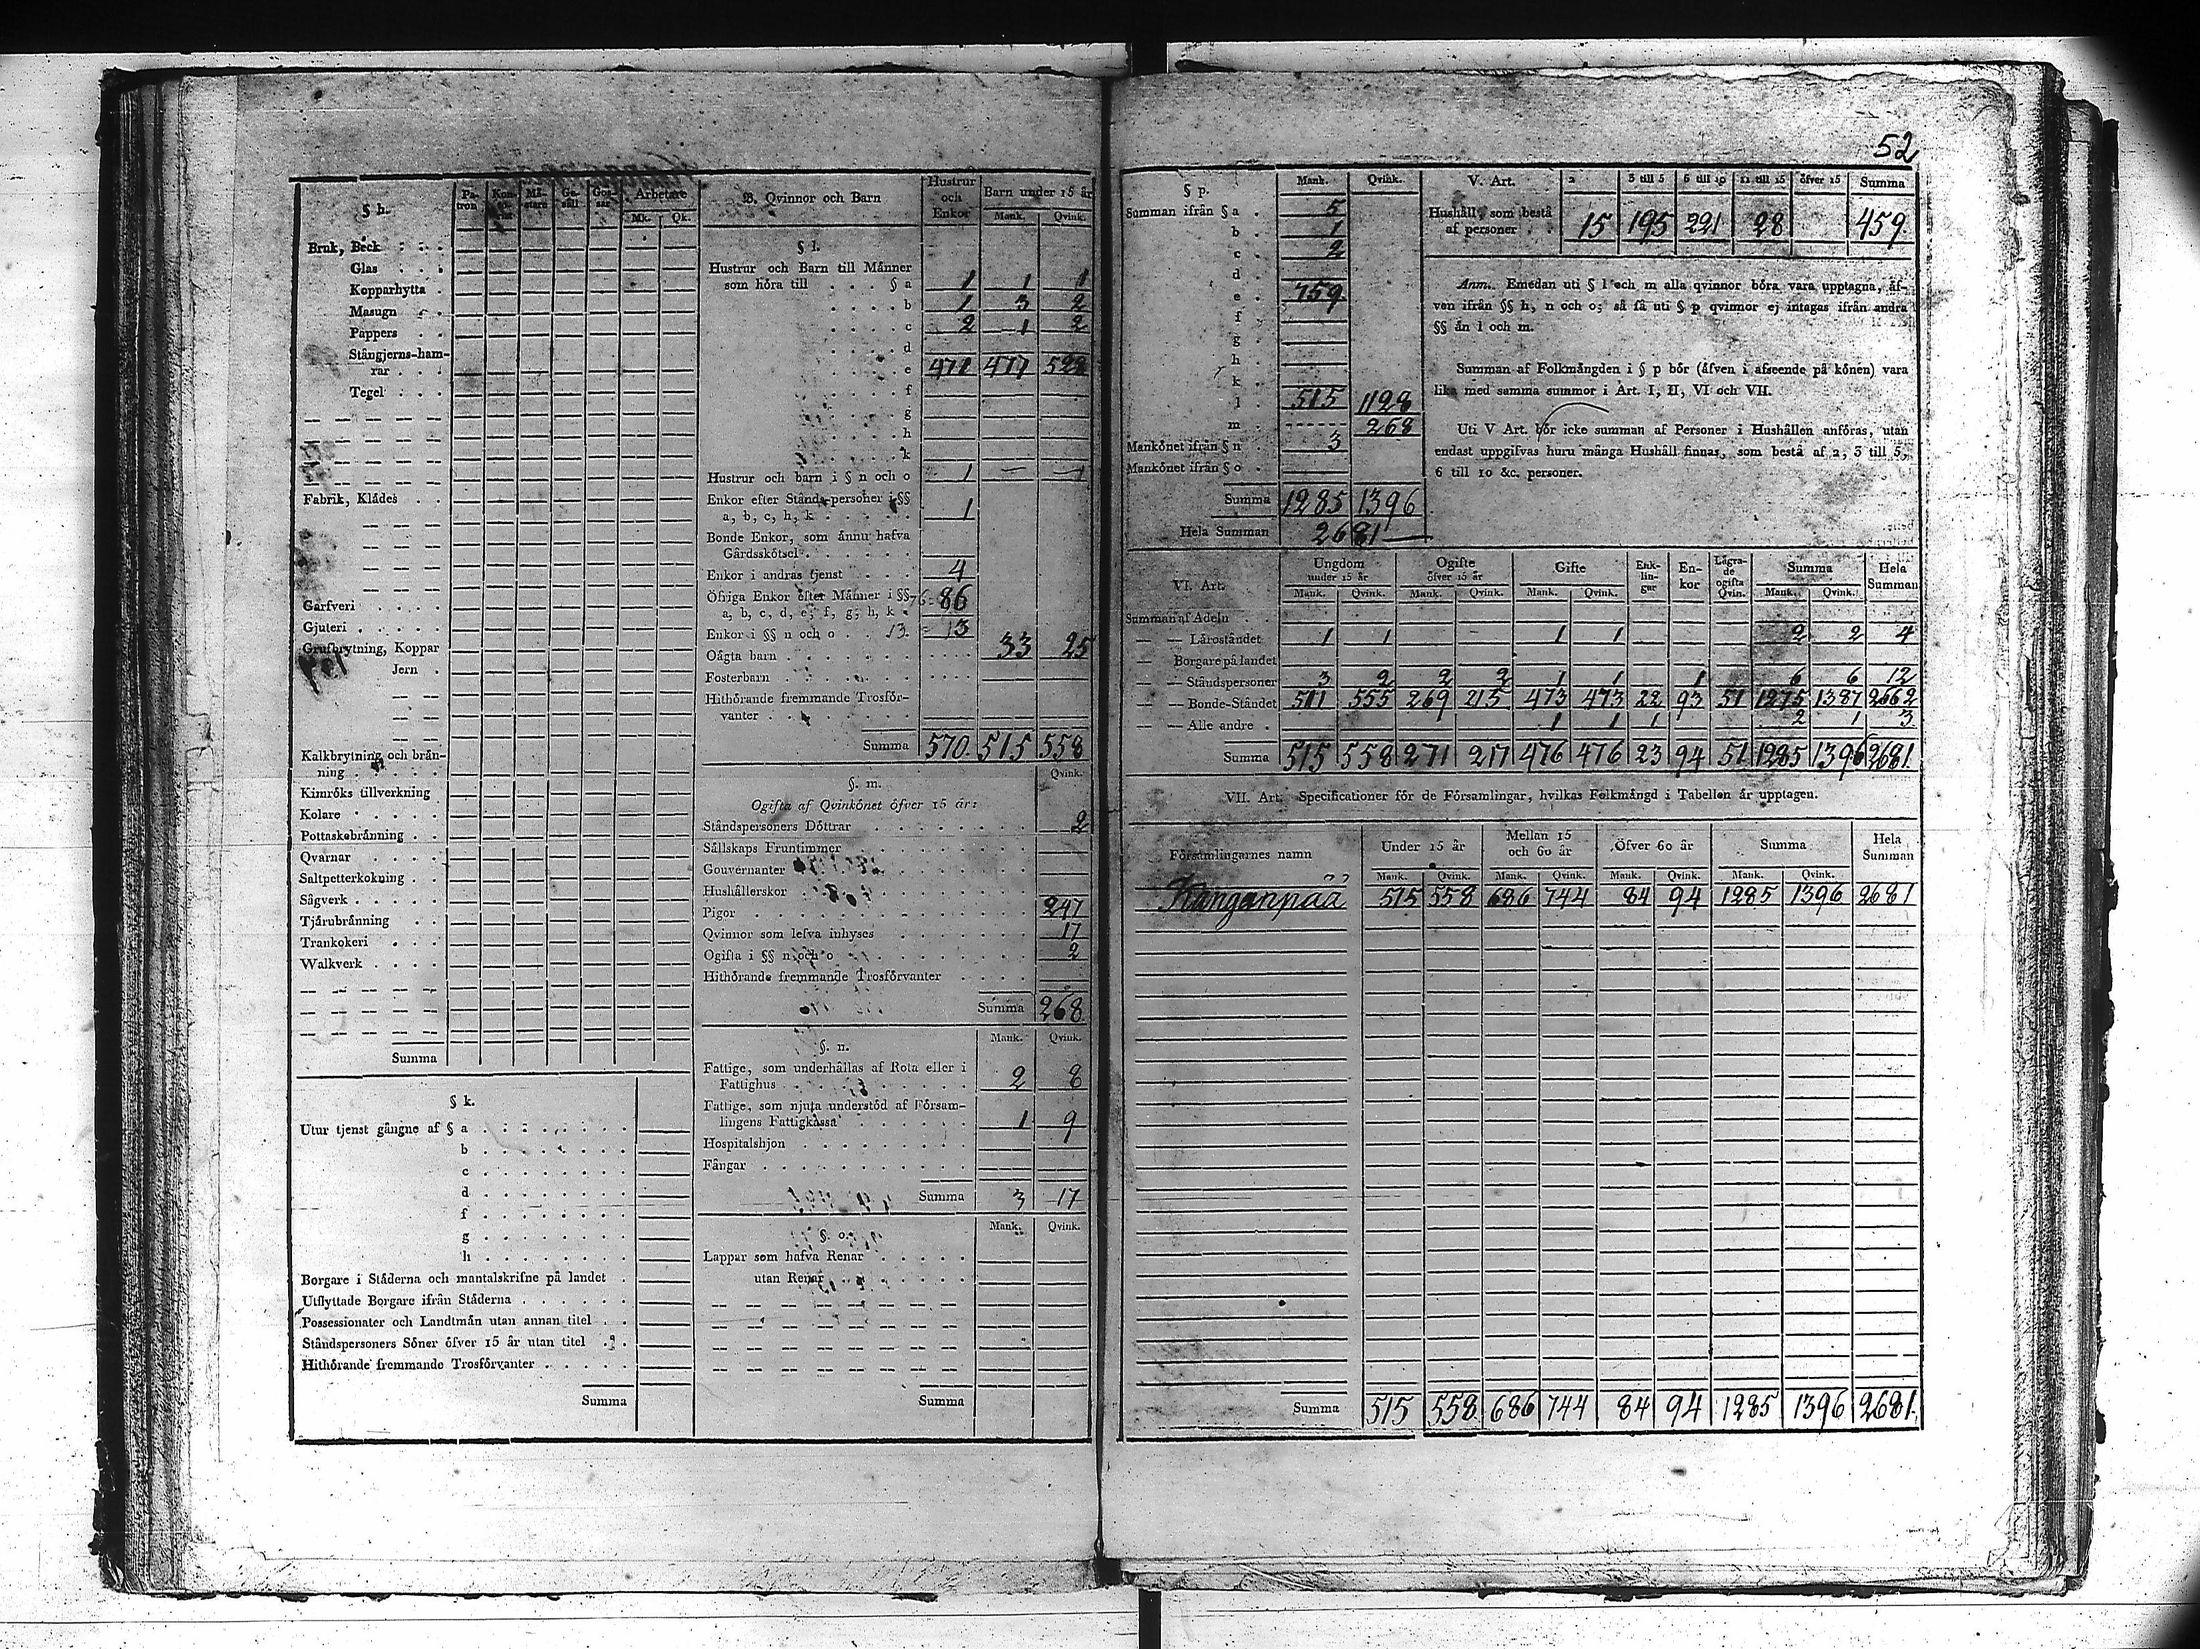 52
§ h.
Pa- tron
Mä- stare
Ge- säll
Gos- sar
Arbetare
Mk. Qk.
Bruk, Beck
Glas
Kopparhytta
Masugn
Pappers
Stångjerns-ham-
rar
Tegel
Fabrik, Klädes
Garfveri
Gjuteri
Grufbrytning, Koppar
Jern
Kalkbrytning och brän-
ning
Kimröks tillverkning
Kolare
Pottaskebränning
Qvarnar
Saltpetterkokning
Sågverk
Tjärubränning
Trankokeri
Walkverk
Summa
§ k.
Utur tjenst gångne af § a
b
c
d
f
g
h
Borgare i Städerna och mantalskrifne på landet
Utflyttade Borgare ifrån Städerna
Possessionater och Landtmän utan annan titel
Ståndspersoners Söner öfver 15 år utan titel
Hithörande fremmande Trosförvanter
Summa
B. Qvinnor och Barn
Hustrur och Enkor
Barn under 15 år
Mank. Qvink.
§ l.
Hustrur och Barn till Männer
som höra till § a 1 1 1
b 1 3 2
c 2 1 2
d
e 471 477 528
f
g
h
k
Hustrur och barn i § n och o 1 — 1
Enkor efter Stånds-personer i §§
a, b, c, h, k 1
Bonde Enkor, som ännu hafva
Gårdsskötsel
Enkor i andras tjenst 4
Öfriga Enkor efter Männer i §§ 76 86
a, b, c, d, e, f, g, h, k
Enkor i §§ n och o 13. 13
Oägta barn 33 25
Fosterbarn
Hithörande fremmande Trosför-
vanter
Summa 570 515 558
§. m. Qvink.
Ogifta af Qvinkönet öfver 15 år:
Ståndspersoners Döttrar 2
Sällskaps Fruntimmer
Gouvernanter
Hushållerskor
Pigor 247
Qvinnor som lefva inhyses 17
Ogifta i §§ n och o 2
Hithörande fremmande Trosförvanter
Summa 268
§. n. Mank. Qvink.
Fattige, som underhållas af Rota eller i
Fattighus 2 8
Fattige, som njuta understöd af Försam-
lingens Fattigkassa 1 9
Hospitalshjon
Fångar
Summa 3 17
§. o. Mank. Qvink.
Lappar som hafva Renar
utan Renar
Summa
§ p. Mank. Qvink.
Summan ifrån § a 5
b 1
c 2
d
e 759
f
g
h
k
l 515 1128
m 268
Mankönet ifrån § n 3
Mankönet ifrån § o
Summa 1285 1396
Hela Summan 2681
V. Art. 2 3 till 5 6 till 10 11 till 15 öfver 15 Summa
Hushåll, som bestå
af personer 15 195 221 28 459
Anm. Emedan uti § l och m alla qvinnor böra vara upptagna, äf-
ven ifrån §§ h, n och o; så få uti § p qvinnor ej intagas ifrån andra
§§ än l och m.
Summan af Folkmängden i § p bör (äfven i afseende på könen) vara
lika med samma summor i Art. I, II, VI och VII.
Uti V Art. bör icke summan af Personer i Hushållen anföras, utan
endast uppgifvas huru många Hushåll finnas, som bestå af 2, 3 till 5,
6 till 10 &c. personer.
VI. Art.
Ungdom under 15 år
Ogifte öfver 15 år
Gifte
Enk- lin- gar
En- kor
Lägra- de ogifta Qvin.
Summa
Hela Summan
Mank. Qvink. Mank. Qvink. Mank. Qvink. Mank. Qvink.
Summan af Adeln
— — Läroståndet 1 1 1 1 2 2 4
— Borgare på landet
— — Ståndspersoner 3 2 2 2 1 1 1 6 6 12
— — Bonde-Ståndet 511 555 269 215 473 473 22 93 51 1275 1387 2662
— — Alle andre 1 1 1 2 1 3
Summa 515 558 271 217 476 476 23 94 51 1285 1396 2681
VII. Art. Specificationer för de Församlingar, hvilkas Folkmängd i Tabellen är upptagen.
Församlingarnes namn
Under 15 år
Mellan 15 och 60 år
Öfver 60 år
Summa
Hela Summan
Mank. Qvink. Mank. Qvink. Mank. Qvink. Mank. Qvink.
Kanganpää 515 558 686 744 84 94 1285 1396 2681
Summa 515 558 686 744 84 94 1285 1396 2681